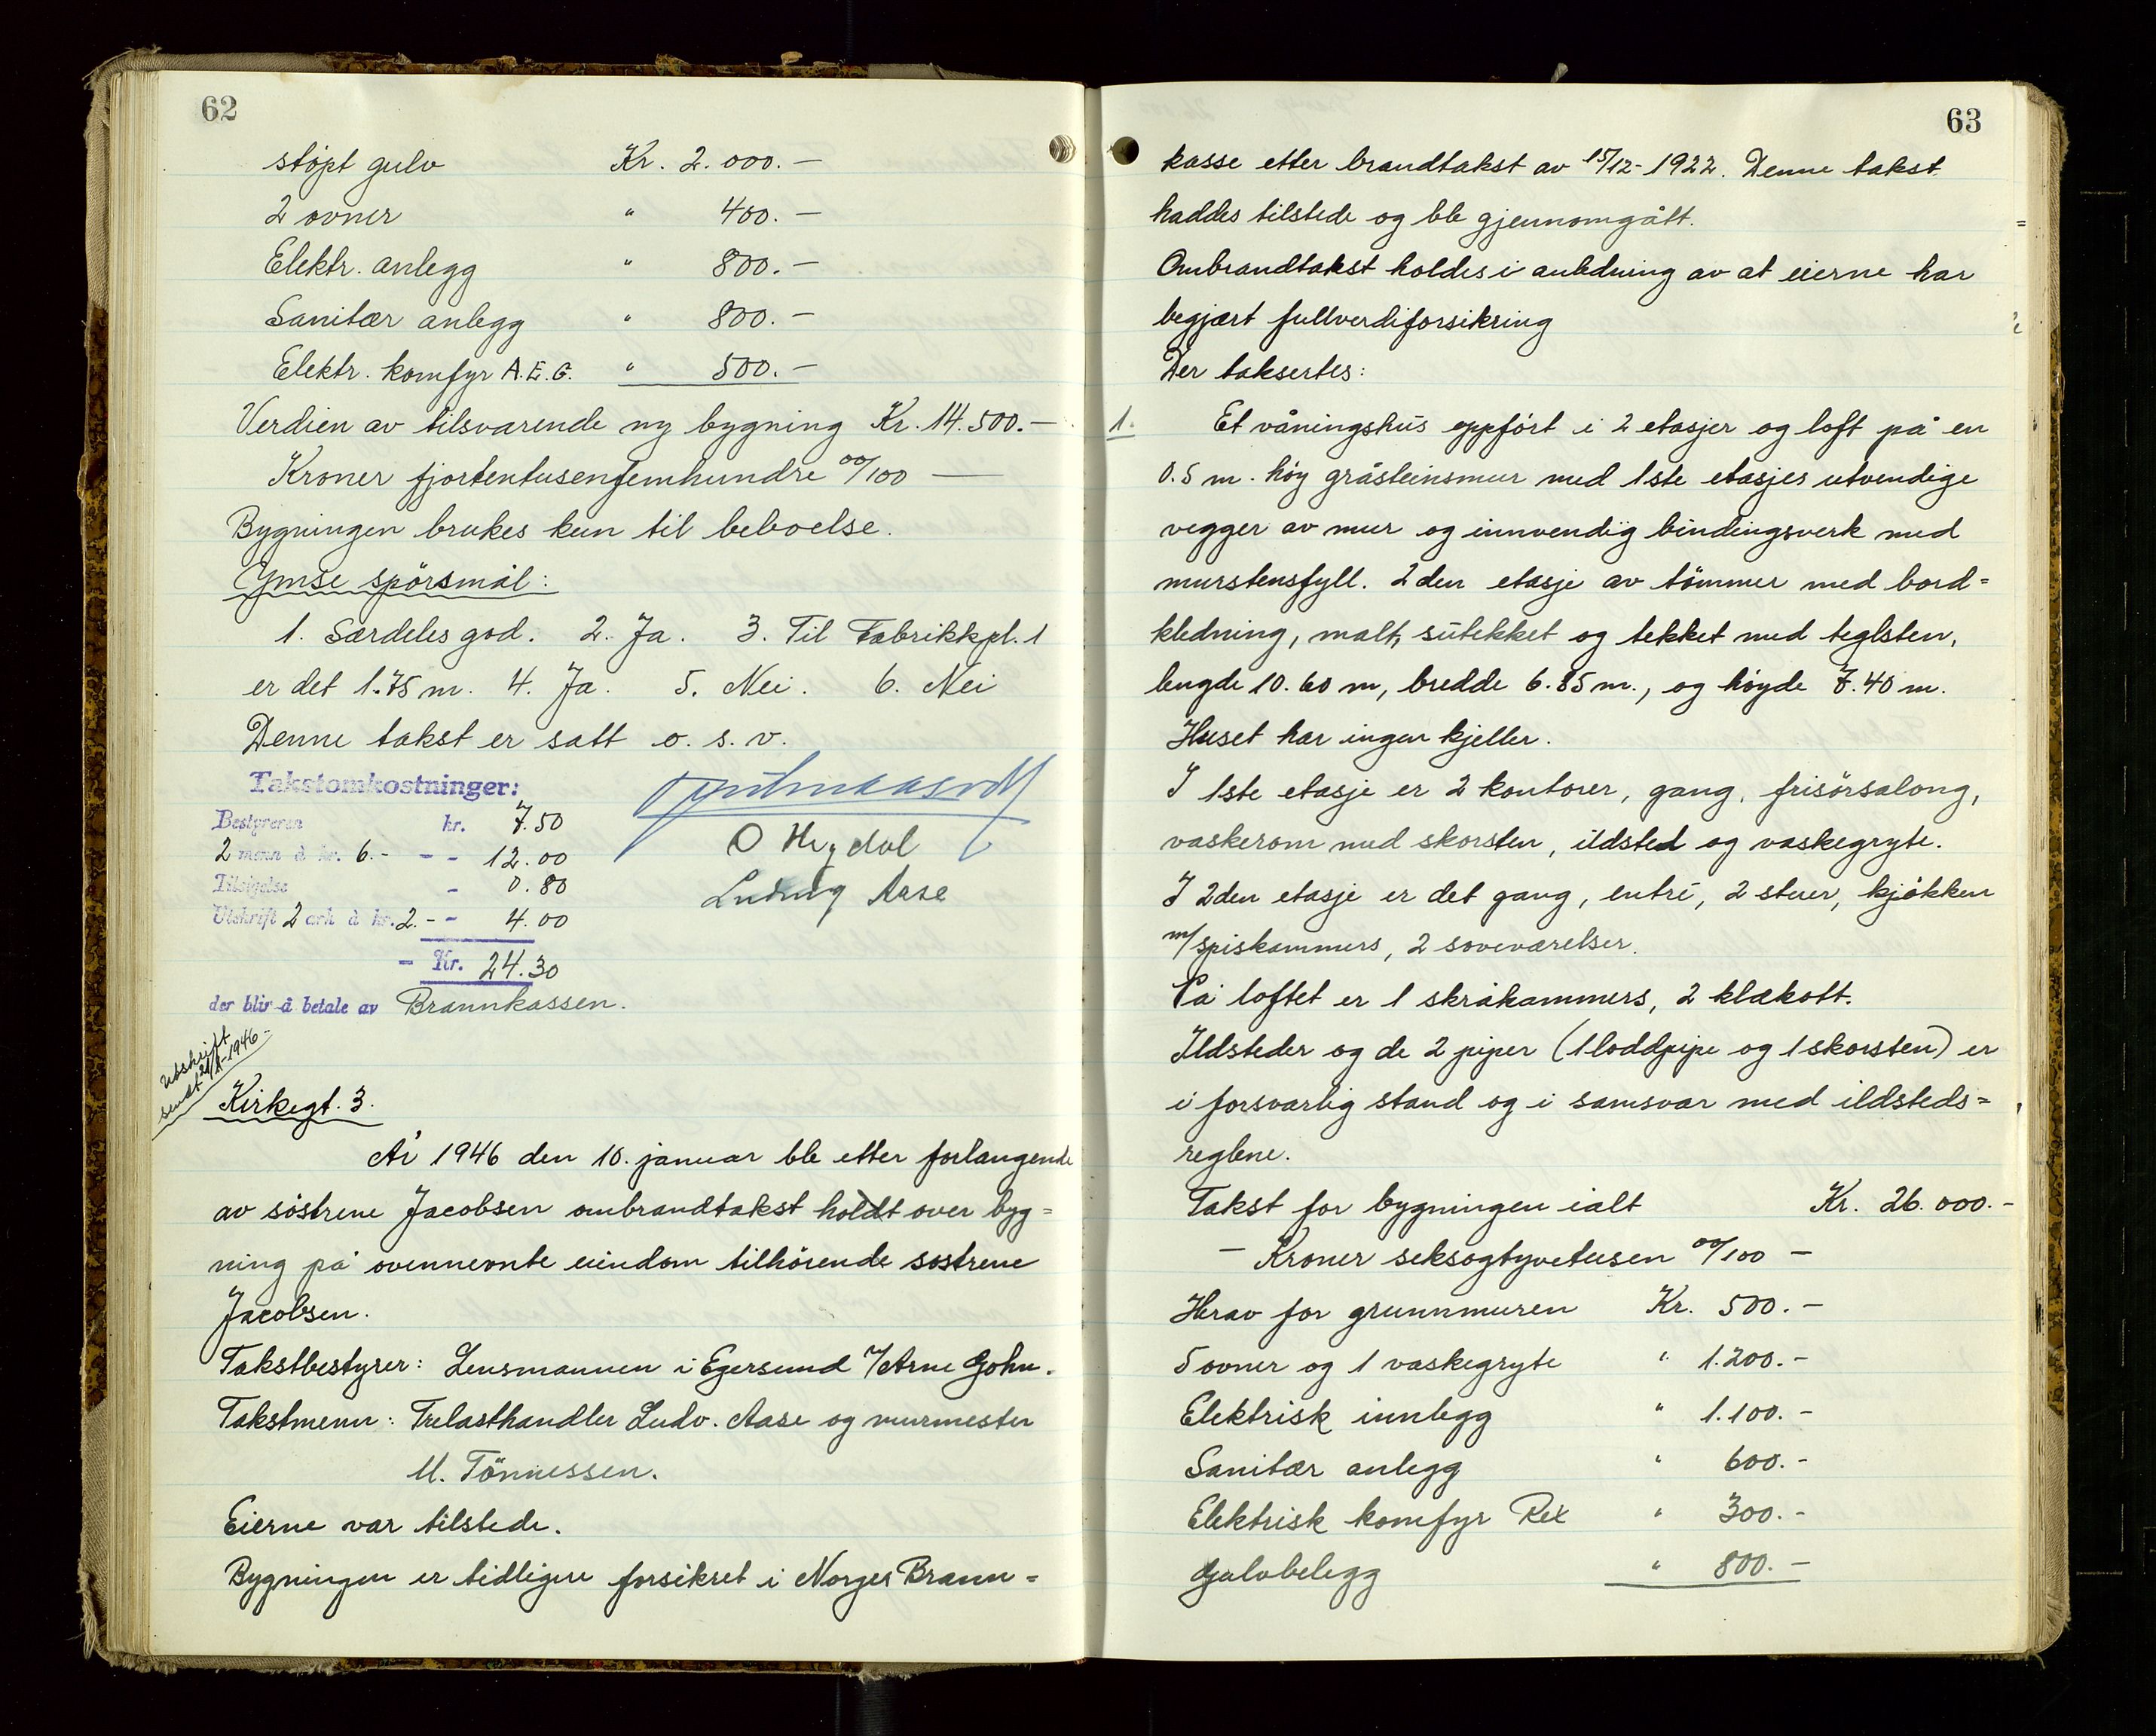 62
støpt gulv Kr. 2.000.-
2 ovner " 400.-
Elektr. anlegg " 800.-
Sanitær anlegg " 800.-
Elektr. komfyr A.E.G. " 500.-
Verdien av tilsvarende ny bygning Kr. 14.500.-
Kroner fjortentusenfemhundre 00/100 —
Bygningen brukes kun til beboelse.
Ymse spörsmål:
1. Særdeles god. 2. Ja. 3. Til Fabrikkpl. 1
er det 1.75 m. 4. Ja. 5. Nei. 6. Nei
Denne takst er satt o. s. v.
Takstomkostninger:
Bestyreren kr. 7.50
2 menn à kr. 6.- - - 12.00
Tilsigelse - 0.80
Utskrift 2 ark à kr. 2.- - 4.00
- Kr. 24.30
der blir å betale av Brannkassen.
O Hegdal
Ludvig Aase
Utskrift
sendt 21/1-1946-
Kirkegt. 3.
År 1946 den 10. januar ble etter forlangende
av søstrene Jacobsen ombrandtakst holdt over byg=
ning på ovennevnte eiendom tilhørende søstrene
Jacobsen.
Takstbestyrer: Lensmannen i Egersund v/Arne Gohn.
Takstmenn: Trelasthandler Ludv. Aase og murmester
M. Tönnessen.
Eierne var tilstede.
Bygningen er tidligere forsikret i Norges Brann=
63
kasse etter brandtakst av 15/12-1922. Denne takst
haddes tilstede og ble gjennomgått.
Ombrandtakst holdes i anledning av at eierne har
begjært fullverdiforsikring
Der taksertes:
1. Et våningshus oppført i 2 etasjer og loft på en
0.5 m. høy gråsteinsmur med 1ste etasjes utvendige
vegger av mur og innvendig bindingsverk med
murstensfyll. 2den etasje av tömmer med bord=
kledning, malt, sutekket og tekket med teglsten,
lengde 10.60 m, bredde 6.85 m., og høyde 7.40 m.
Huset har ingen kjeller.
I 1ste etasje er 2 kontorer, gang, frisörsalong,
vaskerom med skorsten, ildsted og vaskegryte.
I 2den etasje er det gang, entré, 2 stuer, kjökken
m/spiskammers, 2 soveværelser.
På loftet er 1 skråkammers, 2 klækott.
Ildsteder og de 2 piper (1 loddpipe og 1 skorsten) er
i forsvarlig stand og i samsvar med ildsteds=
reglene.
Takst for bygningen ialt Kr. 26.000.-
- Kroner seksogtyvetusen 00/100 -
Herav for grunnmuren Kr. 500.-
5 ovner og 1 vaskegryte " 1.200.-
Elektrisk innlegg " 1.100.-
Sanitær anlegg " 600.-
Elektrisk komfyr Rex " 300.-
Gulvbelegg " 800.-